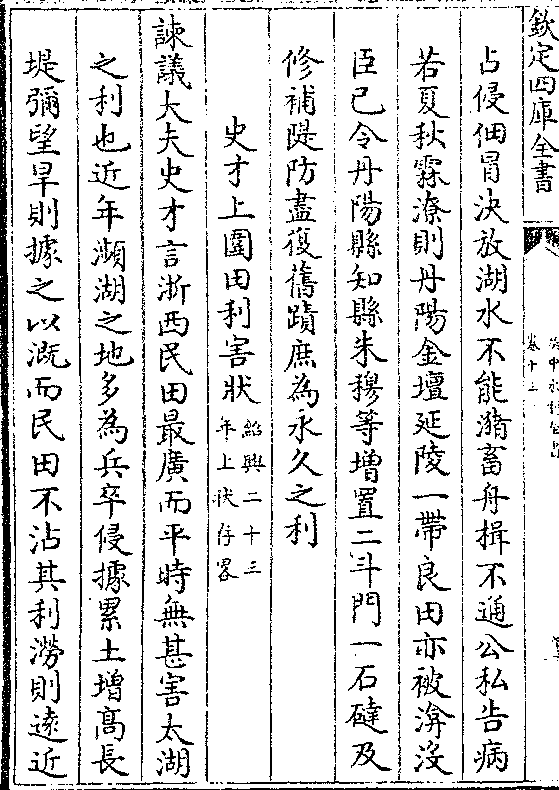 欽定四庫全書
卷十三
占侵佃冒決放湖水不能瀦畜舟揖不通公私告病
若夏秋霖潦則丹陽金壇延陵一帶良田亦被渰没
臣已令丹陽縣知縣朱穆等增置二斗門一石䃮及
修補隄防盡復舊蹟庶為永久之利
史才上圍田利害狀紹興二十三年上狀存畧
諫議大夫史才言浙西民田最廣而平時無甚害太湖
之利也近年瀕湖之地多為兵卒侵據累土增高長
堤彌望旱則據之以溉而民田不沾其利澇則逺近